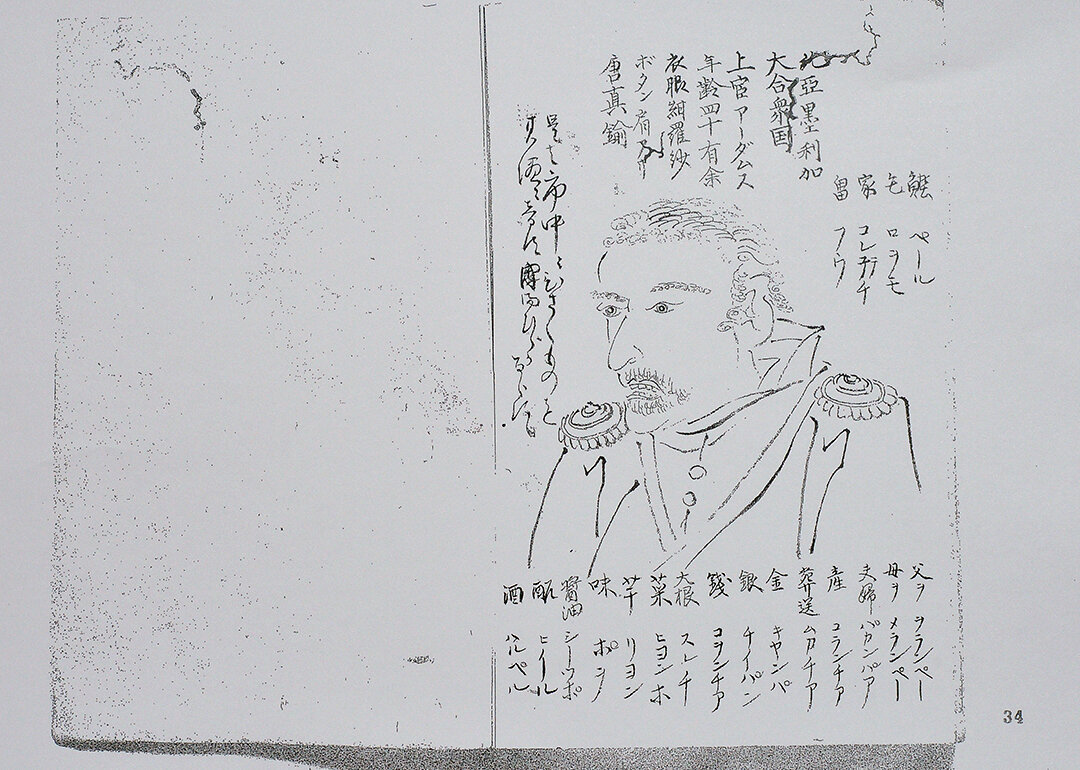 北亞墨利加
大合衆国
上官アーダムス
年齢四十有余
衣服紺羅紗
ボタン肩
唐真鍮
ペール
毛 ロヲモ
家 コレ
畠 フウ
是は市中にひさくものと
父ヲ ヲランペー
母ヲ メランペー
夫婦 バカンパア
産 コランチア
葬送 ムカチア
金 キヤンパ
銀 チイパン
銭 コヲンチア
大根 スレチ
菜 ヒヨンホ
芋 リヨン
味 ポン
醤油 シーツポ
酢 ヒイール
酒 ハルペル
34